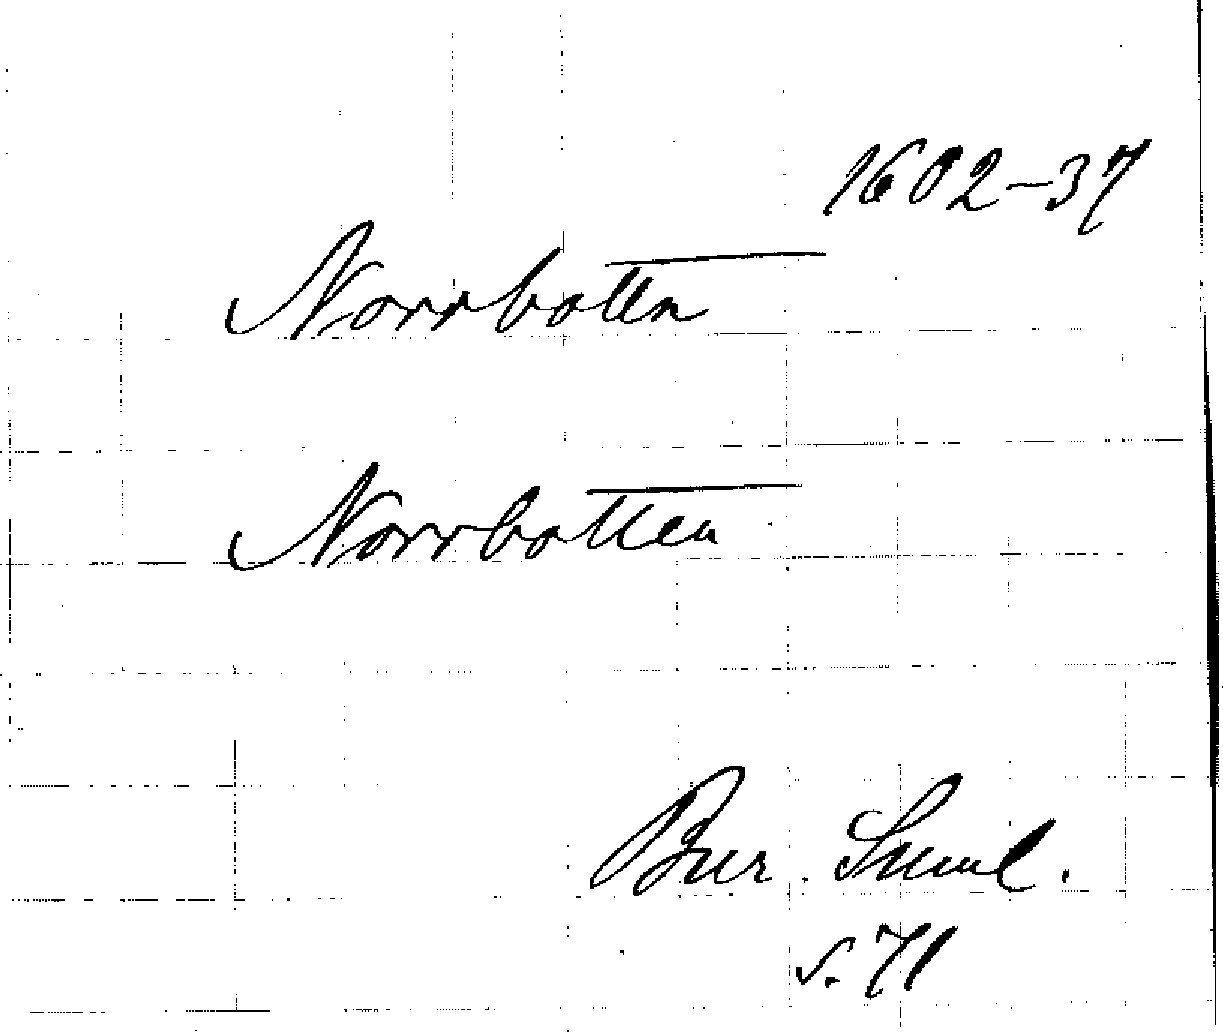 1602-37
Norrbotten
Norrbotten
Bur. Suml.
s. 71